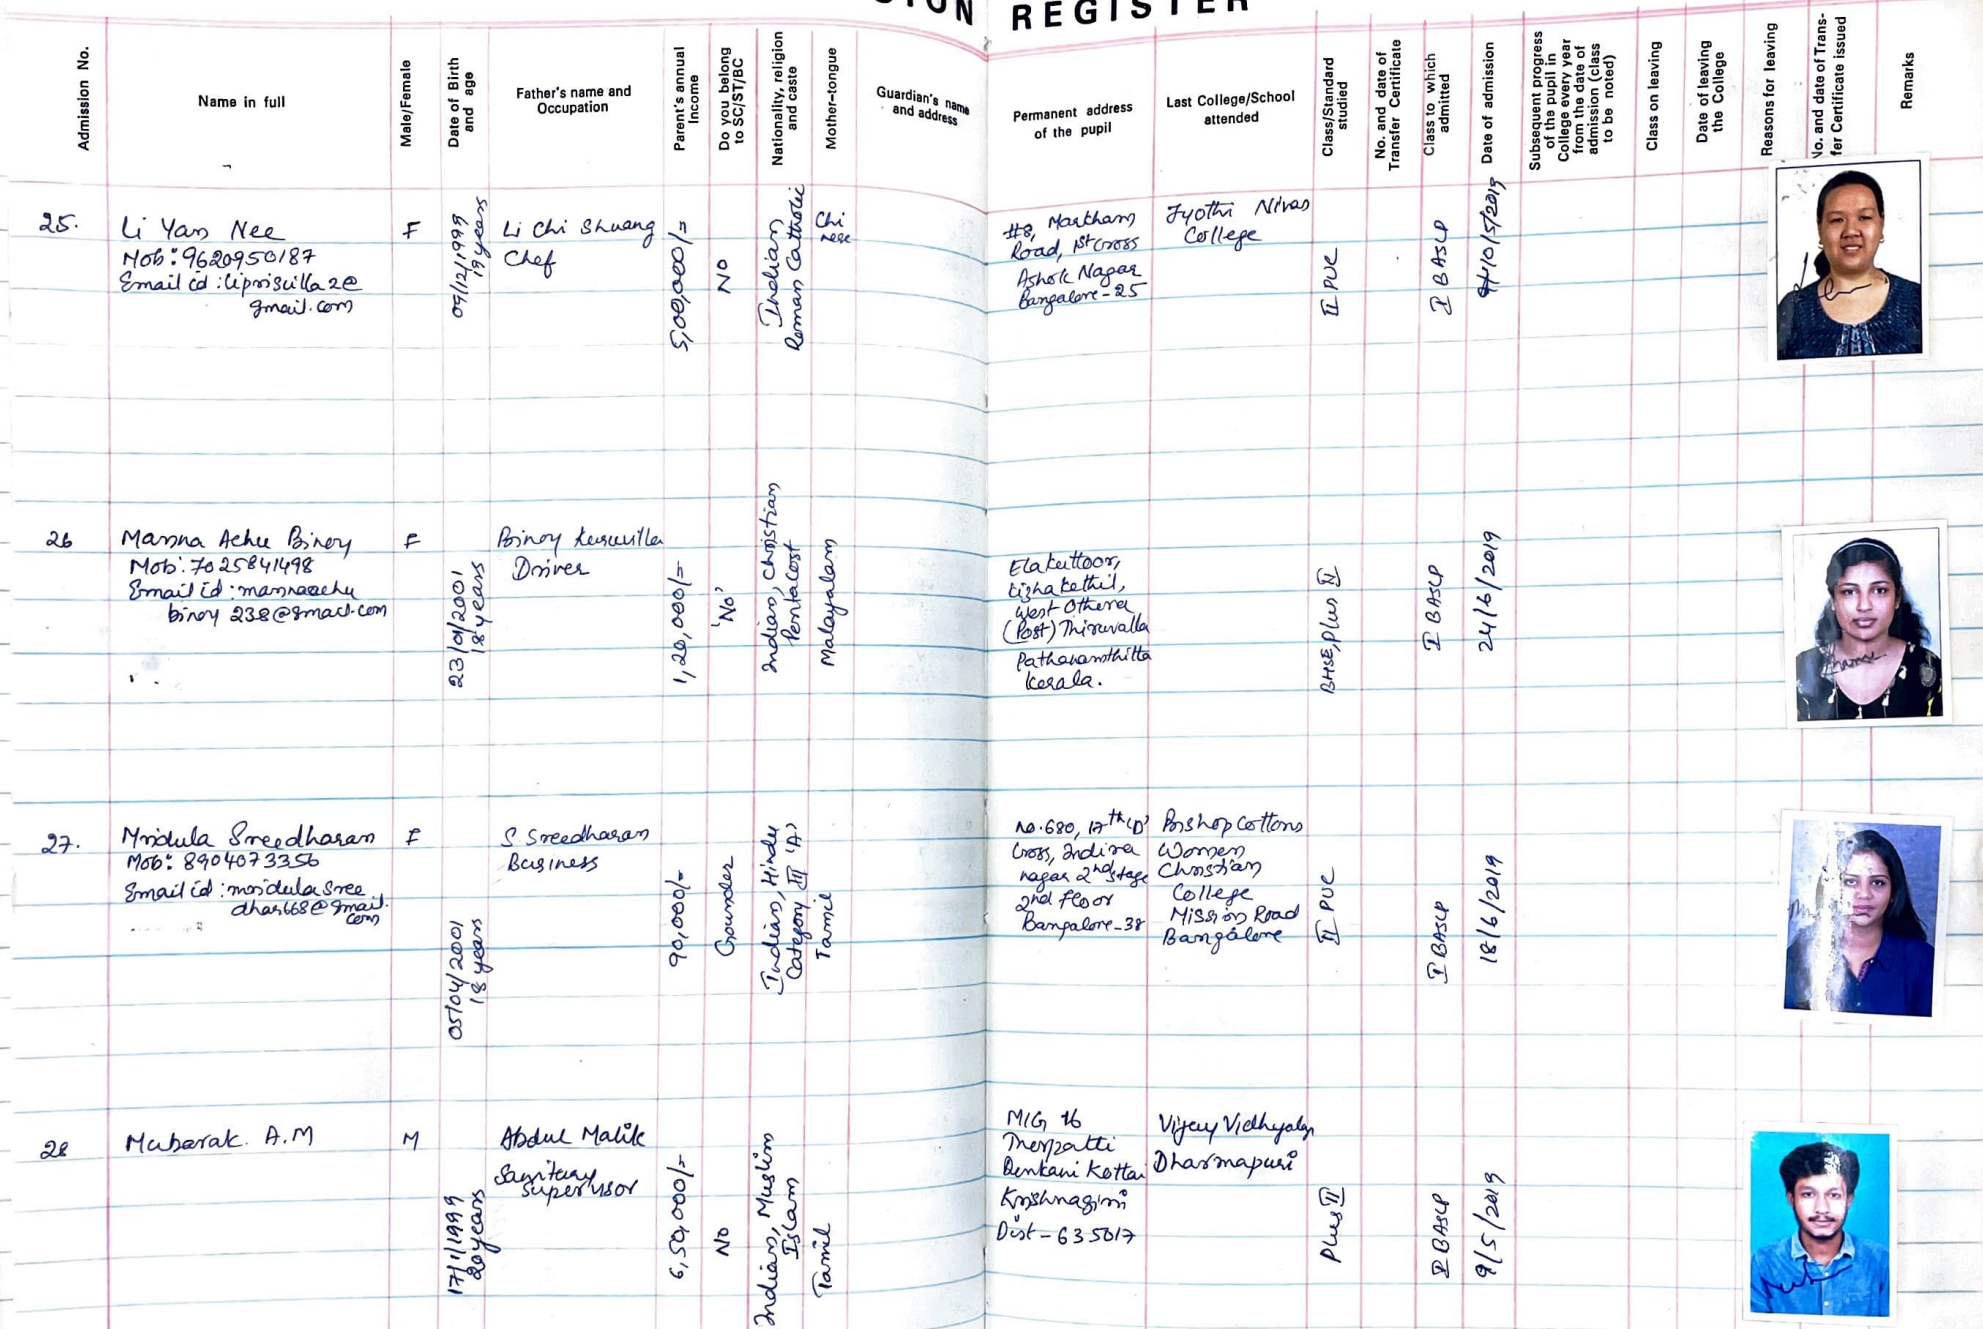 REGISTER
Admission No.
Name in full
Male/Female
Date of Birth
and age
Father's name and
Occupation
Parent's annual
Income
Do you belong
to SC/ST/BC
Nationality, religion
and caste
Mother-tongue
Guardian's name
and address
Permanent address
of the pupil
Last College/School
attended
Class/Standard
studied
No. and date of
Transfer Certificate
Class to which
admitted
Date of admission
Subsequent progress
of the pupil in
College every year
from the date of
admission (class
to be noted)
Class on leaving
Date of leaving
the College
Reasons for leaving
No. and date of Trans-
fer Certificate issued
Remarks
25.
Li Yan Nee
Mob: 9620950187
Email id: lipriscilla2@
gmail.com
F
09/12/1999
19 years
Li Chi Shuang
Chef
5,00,000/=
NO
Indian
Roman Catholic
Chi
nese
#8, Markham
Road, 1st Cross
Ashok Nagar
Bangalore-25
Jyothi Nivas
College
II PUC
I BASLP
10/5/2019
26
Manna Achu Binoy
Mob: 7025841498
Email id: mannaachu
binoy238@gmail.com
F
23/01/2001
18 years
Binoy Kuruvilla
Driver
1,20,000/=
'No'
Indian, Christian
Pentacost
Malayalam
Elakuttoor,
Kizhakethil,
West Othera
(Post) Thiruvalla
Pathanamthitta
Kerala.
BHSE, Plus II
I BASLP
24/6/2019
27.
Mridula Sreedharan
Mob: 8904073356
Email id: mridulasree
dhar668@gmail.
com
F
05/04/2001
18 years
S. Sreedharan
Business
90,000/-
Gounder
Indian, Hindu
Category III 'A'
Tamil
No.680, 17th 'D'
Cross, Indira
nagar 2nd stage
2nd Floor
Bangalore-38
Bishop Cottons
Women
Christian
College
Mission Road
Bangalore
II PUC
I BASLP
18/6/2019
28
Mubarak. A.M
M
17/1/1999
20 years
Abdul Malik
Sanitary
Supervisor
6,50,000/=
No
Indian, Muslim
Islam
Tamil
MIG 16
Denkani Kottai
Krishnagiri
Dist-635017
Vijay Vidhyalya
Dharmapuri
Plus II
I BASLP
9/5/2019